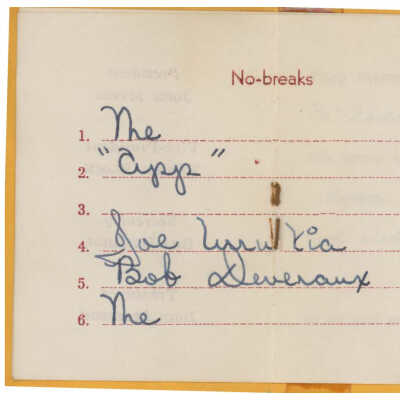 No-breaks
1. The
2. "App"
3.
4. Joe Urrutia
5. Bob Deveraux
6. The